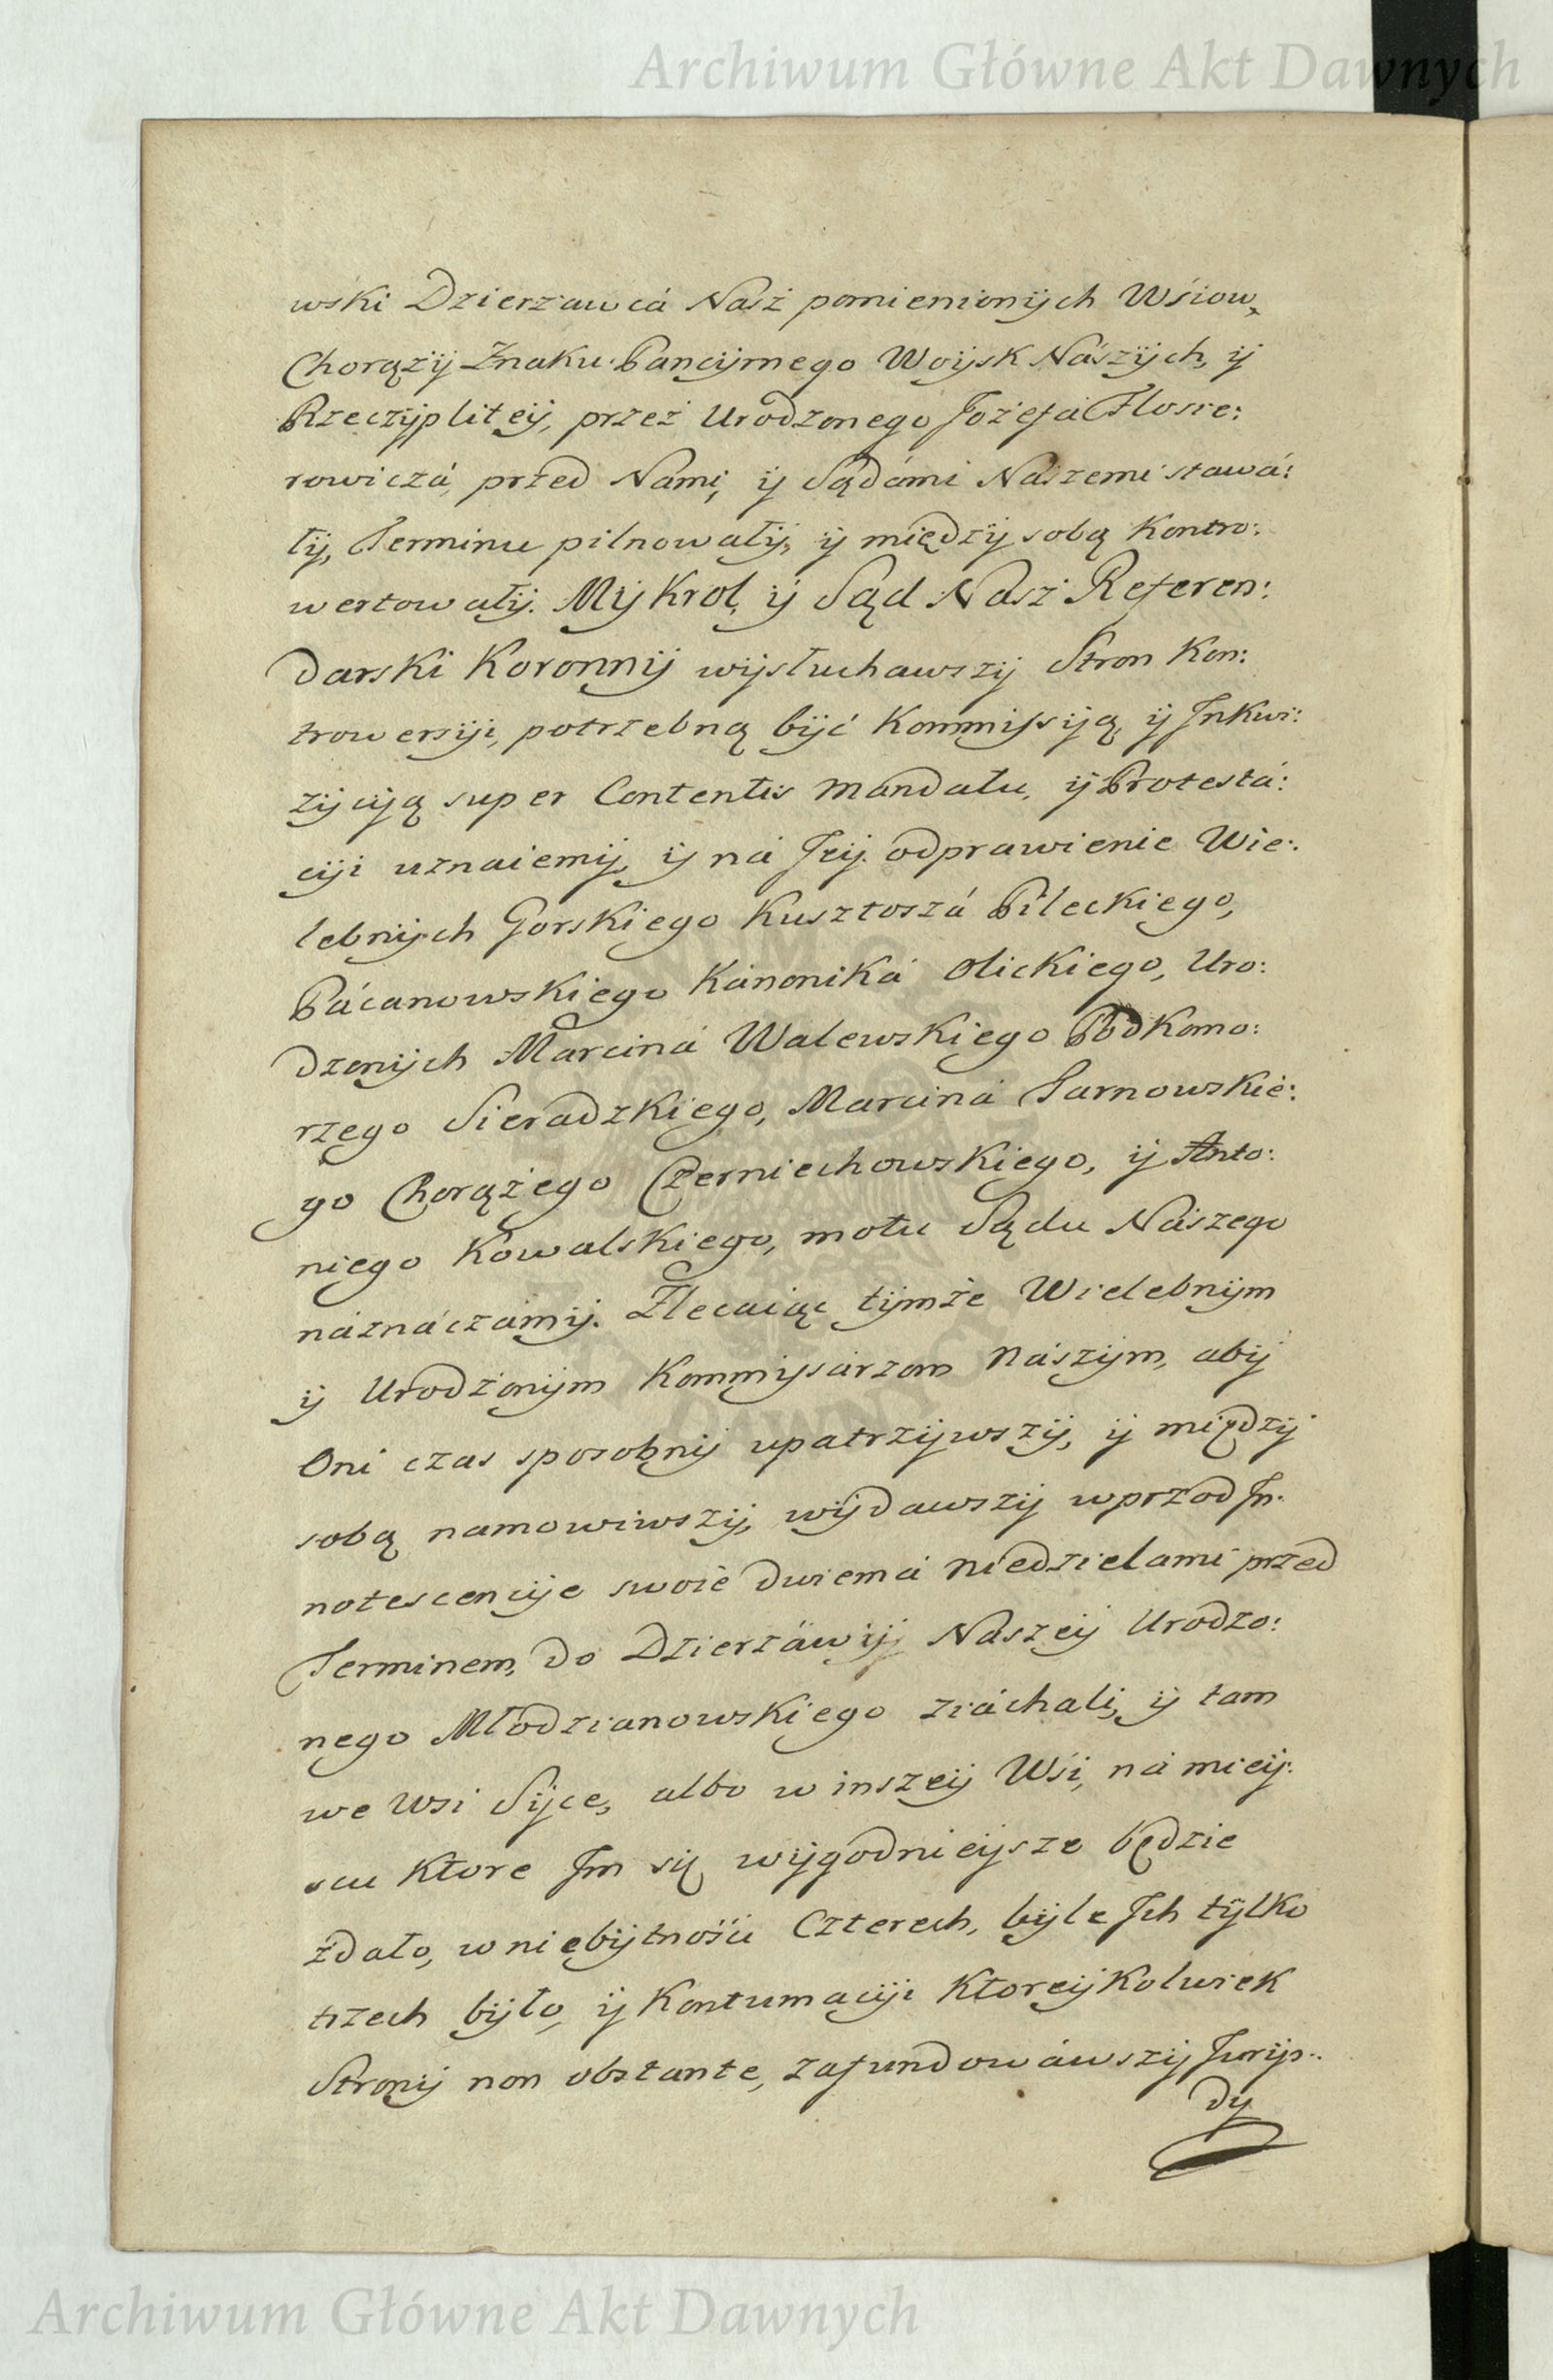 Archiwum Główne Akt Dawnych
wski Dzierzawcá Nasż pomienionych Wśiow,
Chorąży Znaku Pancyrnego Woysk Nászych, y
Rzeczyplitey, przeż Urodzonego Jozefá Flosie:
rowiczá, przed Námi, y Sądámi Naszemi stawá:
ły, Terminu pilnowały, y między sobą Kontro:
wertowały. My Krol, y Sąd Nasż Referen:
darski Koronny wysłuchawszy Stron Kon:
trowersyi, potrzebną być Kommissyą, y Jnkwi:
zycyą super Contentis Mandatu, y Protestá:
cyi uznaiemy, y ná Jey odprawienie Wie:
lebnych Gorskiego Kusztoszá Pileckiego,
Pácanowskiego Kánoniká Olickiego, Uro:
dzonych Marciná Walewskiego Podkomo:
rzego Sieradzkiego, Marciná Tarnowskie:
go Chorążego Czerniechowskiego, y Anto:
niego Kowalskiego, motu Sądu Nászego
náznáczámy. Zlecaiąc tymże Wielebnym
y Urodzonym Kommyssárzom Nászym, aby
Oni czas sposobny upatrzywszy, y między
sobą namowiwszy, wydawszy wprzod Jn:
notescencye swoie dwiemá Niedzielami przed
Terminem, do Dzierżáwy Naszey Urodzo:
nego Młodzianowskiego ziáchali, y tam
we Wsi Syce, albo w inszey Wśi, ná miey:
scu Ktore Jm się wygodnieysze będzie
zdało, w niebytnośći Czterech, byle Jch tylko
trzech było, y Kontumacyi Ktoreykolwiek
Strony non obstante, zafundowáwszy Jurys:
dy
Archiwum Główne Akt Dawnych